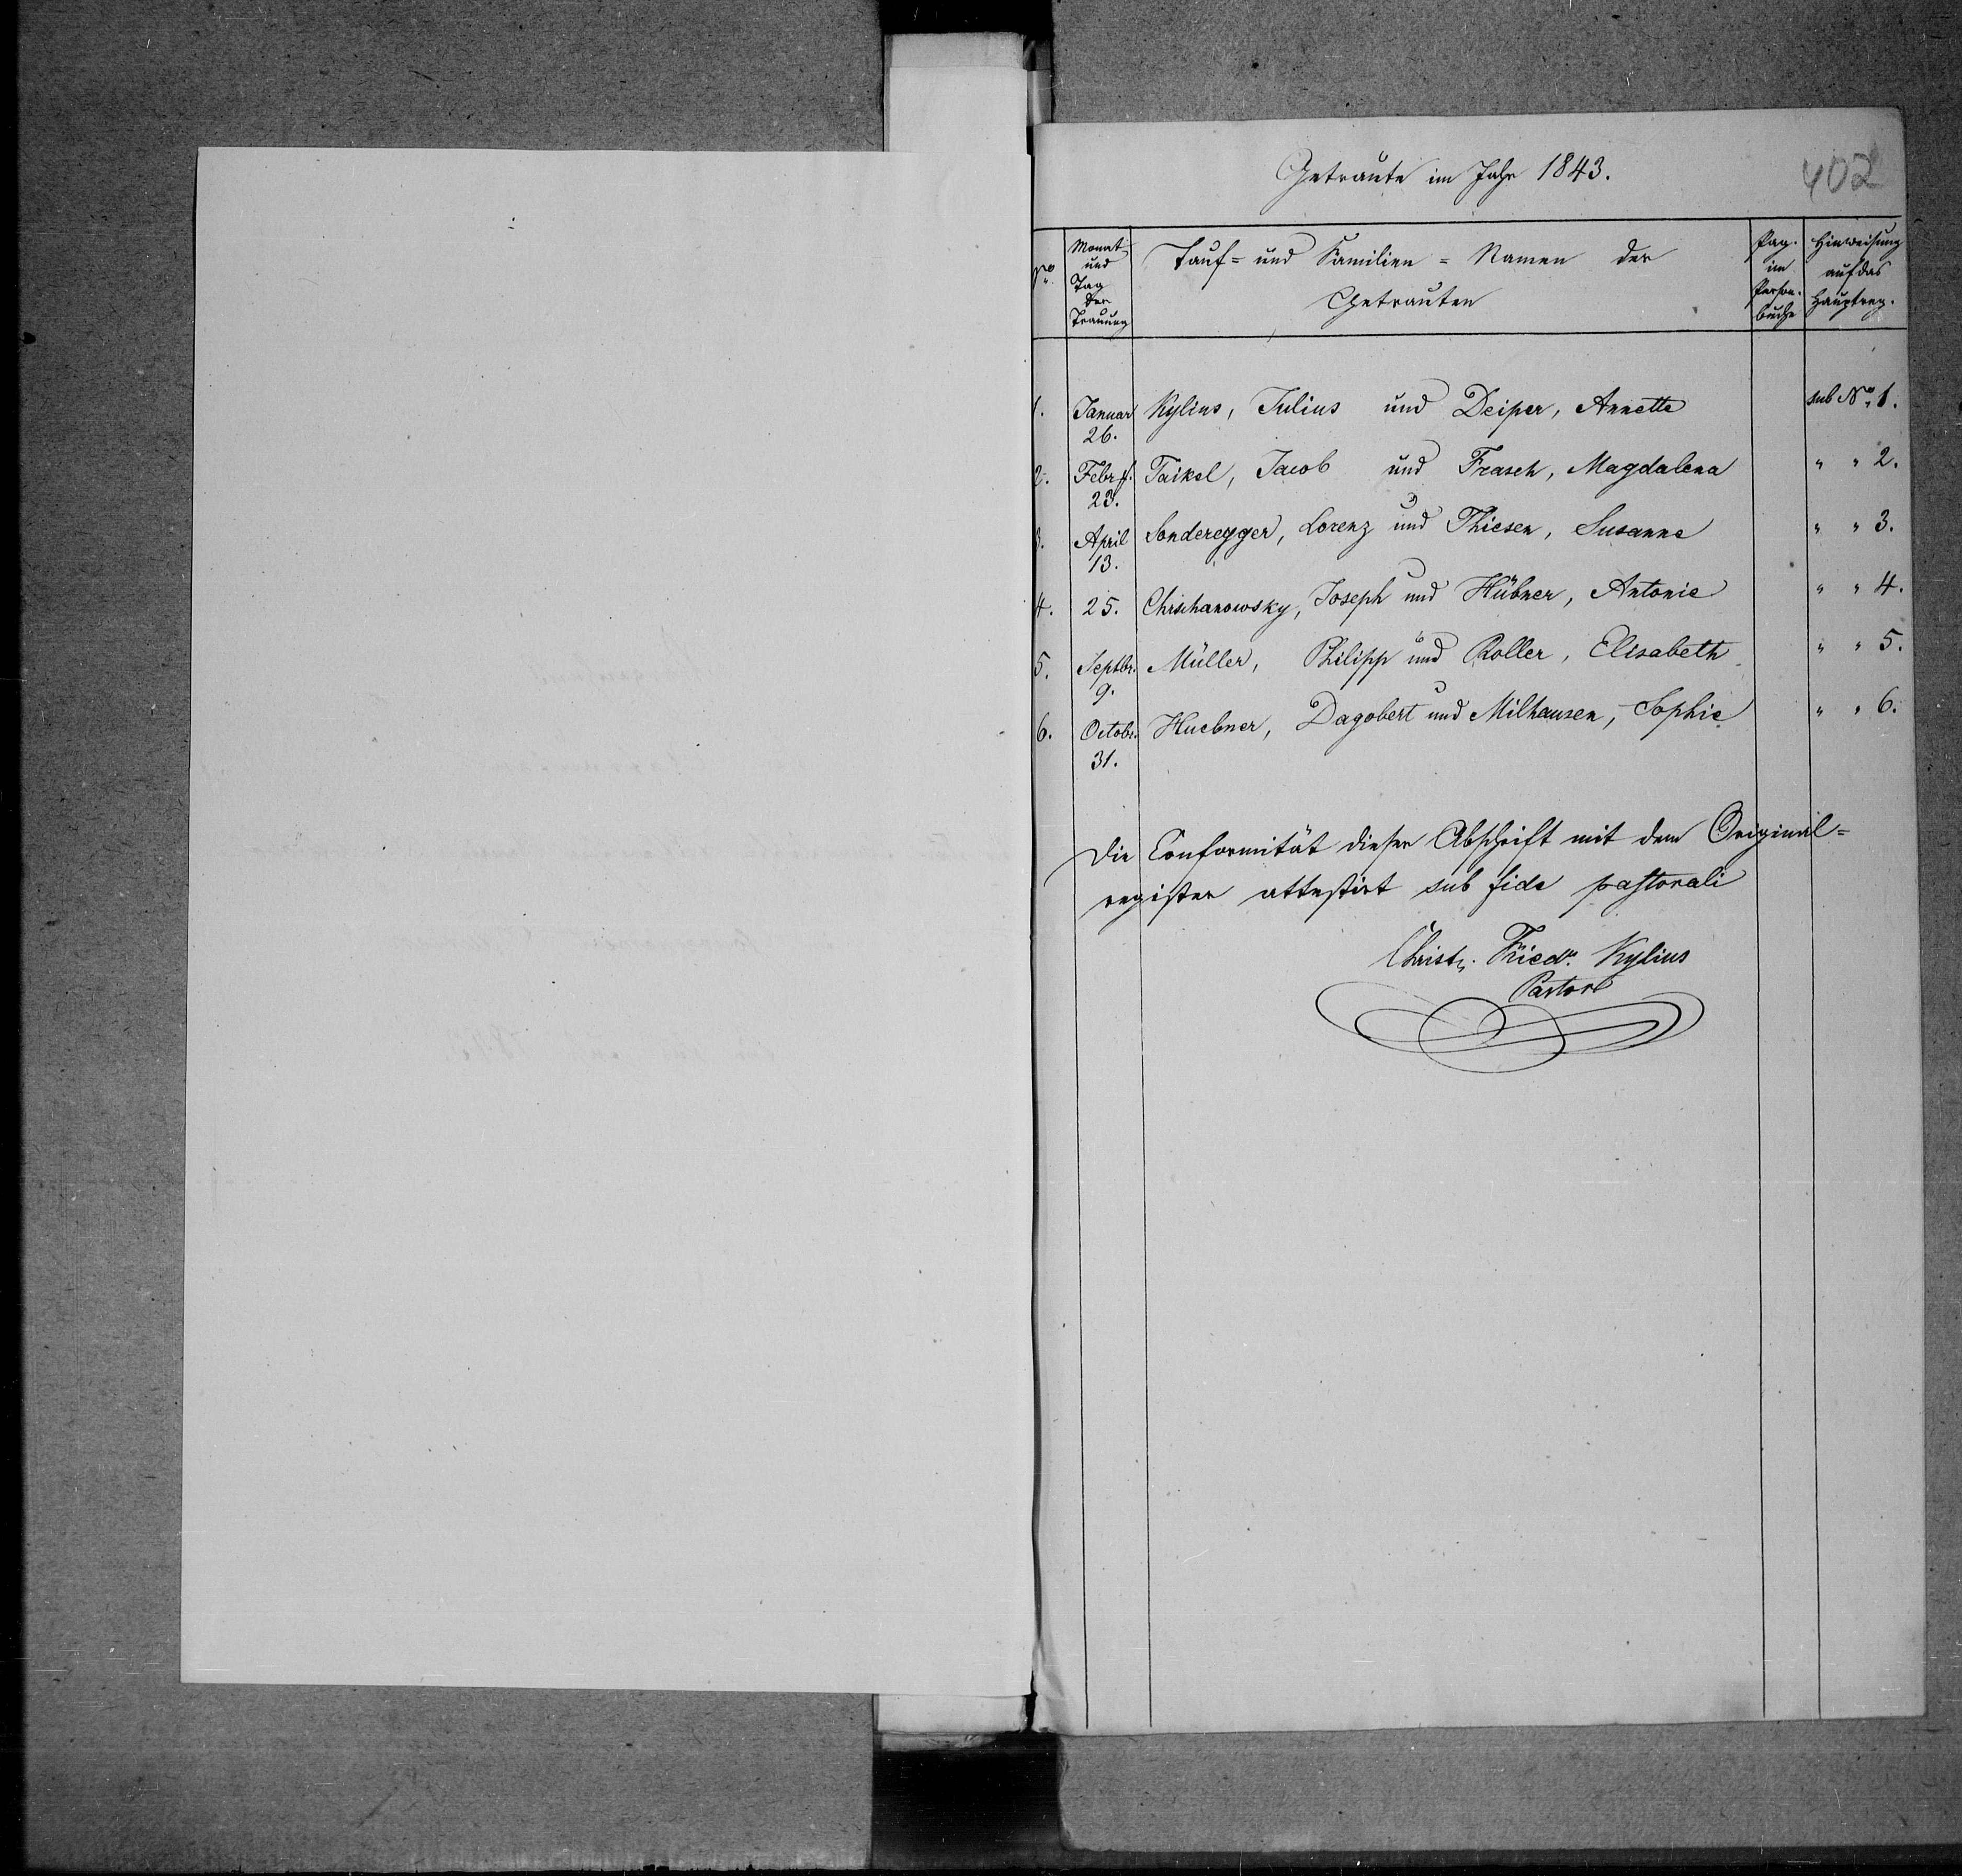 Getraute im Jahr 1843.
402
No.
Monat und Tag der Trauung
Tauf- und Familien-Namen der Getrauten
Pag. im Person. buche
Hinweisung auf das Hauptreg.
1. Januar 26. Kylius, Julius und Deiper, Annette sub No. 1.
2. Febr. 23. Taikel, Jacob und Frasch, Magdalena " " 2.
3. April 13. Sonderegger, Lorenz und Thiesen, Susanne " " 3.
4. 25. Chrschanowsky, Joseph und Hübner, Antonie " " 4.
5. Septbr. 9. Müller, Philipp und Roller, Elisabeth " " 5.
6. Octobr. 31. Huebner, Dagobert und Milhausen, Sophie " " 6.
Die Conformität dieser Abschrift mit dem Original=
register attestirt sub fide pastorali
Christ. Friedr. Kylius
Pastor